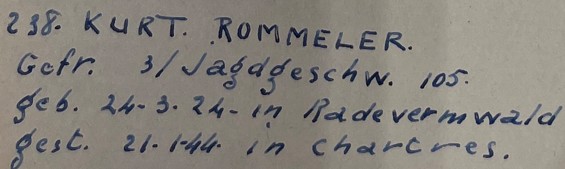 238. KURT. ROMMELER.
Gefr. 3/Jagdgeschw. 105.
geb. 24-3-24- in Radevermwald
gest. 21-1-44. in chartres.